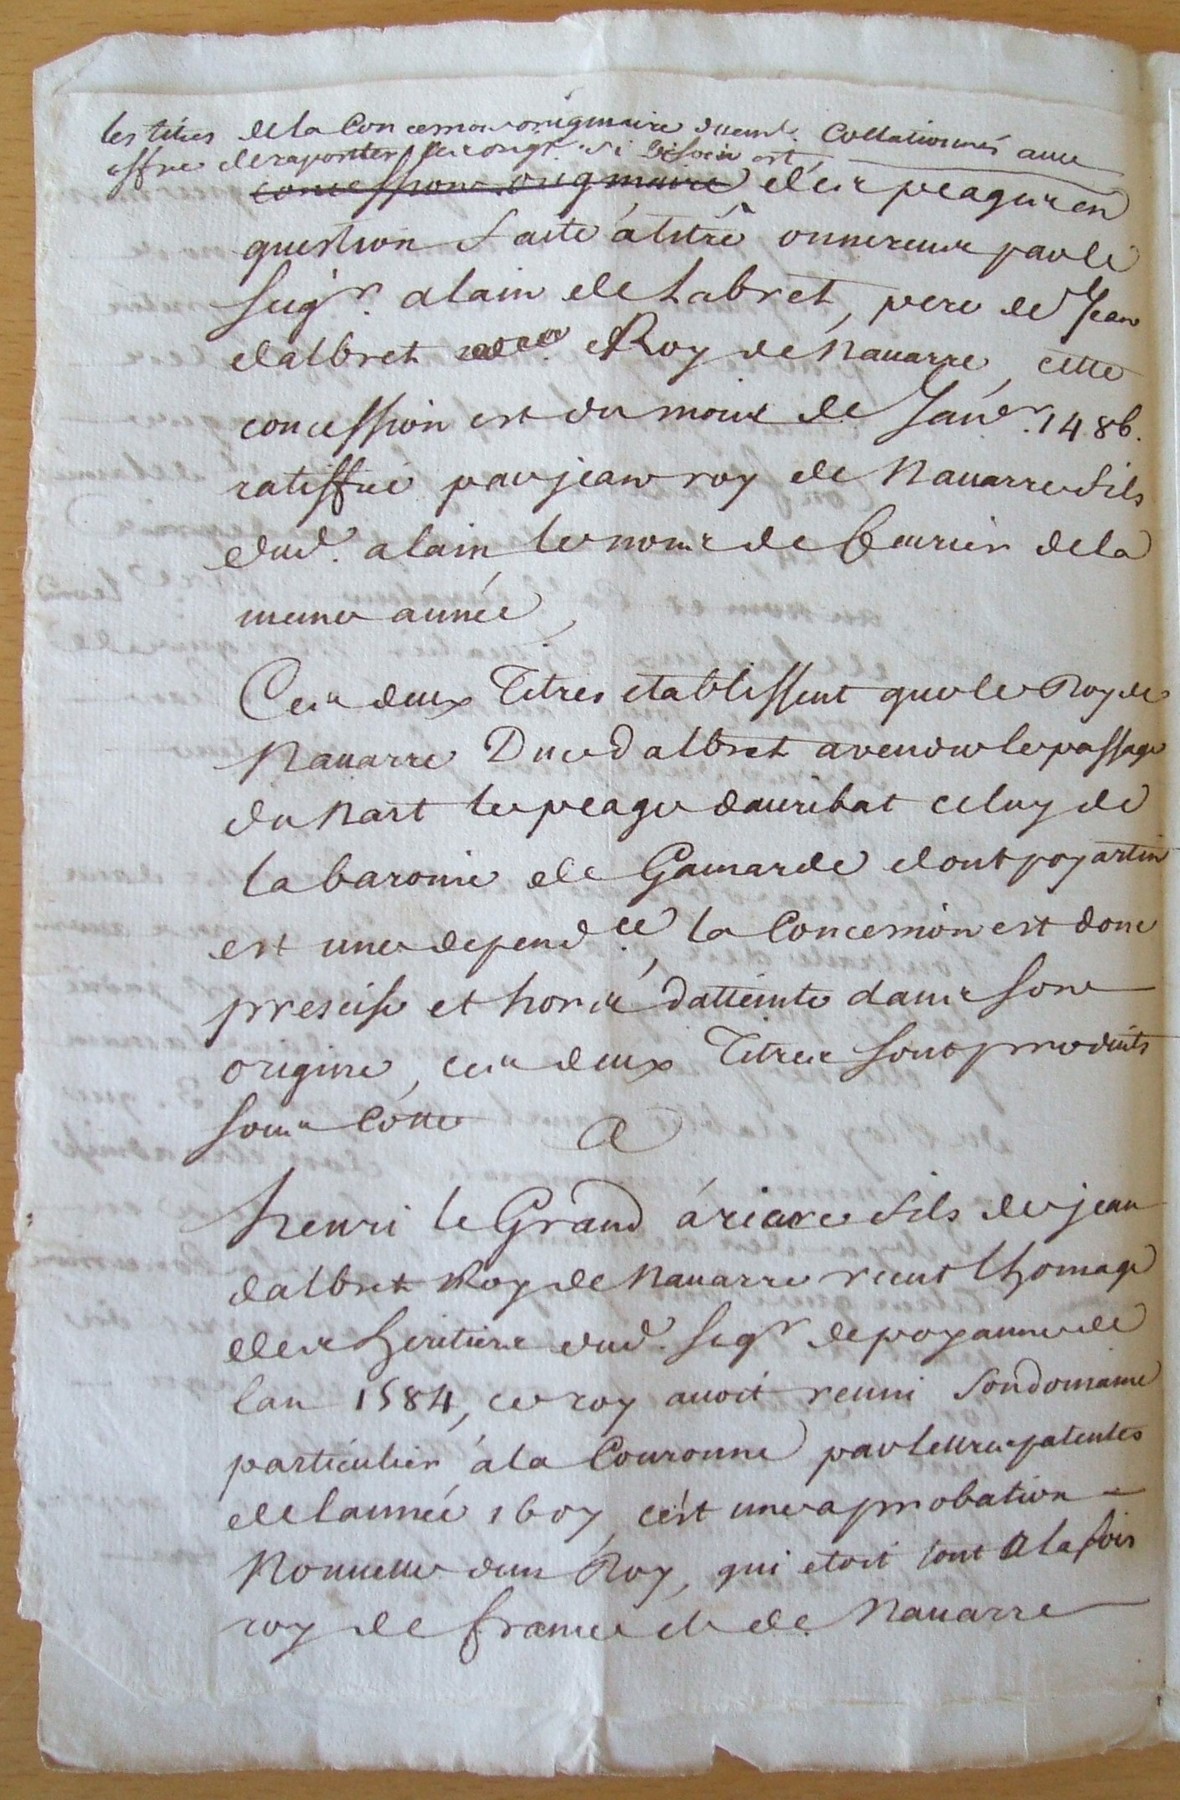 les titres de la Concession originaire duem.t Collationnés avec
offre de raporter les orig.x si besoin est
concession originaire des peages en
question faite á titre onnereux par le
seig.r alain de Labret, pere de Jean
dalbret Roy de Nauarre, cette
concession est du mois de Janv.r 1486.
ratiffiée par jean roy de Nauarre fils
dud. alain le mois de feurier de la
meme année
Ces deux Titres etablissent que le Roy de
Nauarre Duc dalbret a vendu le passage
du Nart le peage dauribat celuy de
la baronie de Gamarde dont poyartin
est une depend.ce, la Concession est donc
prescise et hors d'atteinte dans son
origine, ces deux Titres sont produits
sous Cotte A
henri le Grand arriere fils de jean
dalbret Roy de Nauarre recut lhomage
des heritiers dud. seig.r de poyanne de
lan 1584, ce roy auoit reuni son domaine
particulier á la Couronne par lettres patentes
de lannée 1607, cést une aprobation
Nouuelle dun Roy, qui etoit tout a la fois
roy de france et de Nauarre